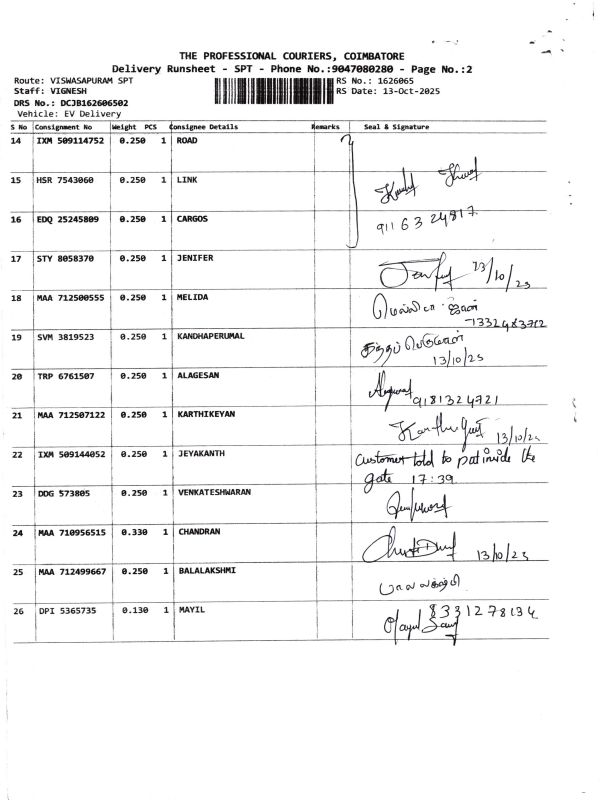 THE PROFESSIONAL COURIERS, COIMBATORE
Delivery Runsheet - SPT - Phone No.:9047080280 - Page No.:2
Route: VISWASAPURAM SPT RS No.: 1626065
Staff: VIGNESH RS Date: 13-Oct-2025
DRS No.: DCJB162606502
Vehicle: EV Delivery
S No Consignment No Weight PCS Consignee Details Remarks Seal & Signature
14 IXM 509114752 0.250 1 ROAD
15 HSR 7543060 0.250 1 LINK
16 EDQ 25245809 0.250 1 CARGOS 9116324817
17 STY 8058370 0.250 1 JENIFER 13/10/25
18 MAA 712500555 0.250 1 MELIDA
7332483712
19 SVM 3819523 0.250 1 KANDHAPERUMAL
13/10/25
20 TRP 6761507 0.250 1 ALAGESAN 9181324721
21 MAA 712507122 0.250 1 KARTHIKEYAN 13/10/25
22 IXM 509144052 0.250 1 JEYAKANTH Customer told to put inside the
gate 17:39
23 DDG 573805 0.250 1 VENKATESHWARAN
24 MAA 710956515 0.330 1 CHANDRAN 13/10/25
25 MAA 712499667 0.250 1 BALALAKSHMI பாலலக்ஷ்மி
26 DPI 5365735 0.130 1 MAYIL 8331278134